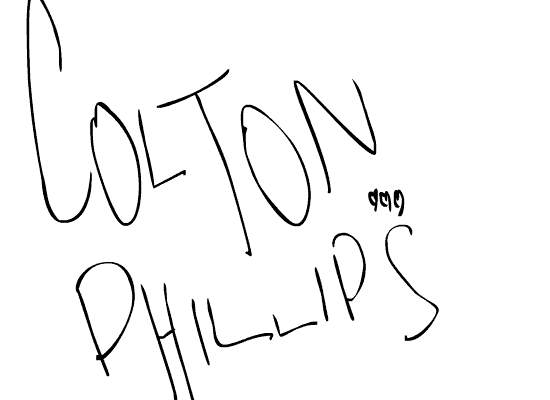 COLTON
PHILLIPS